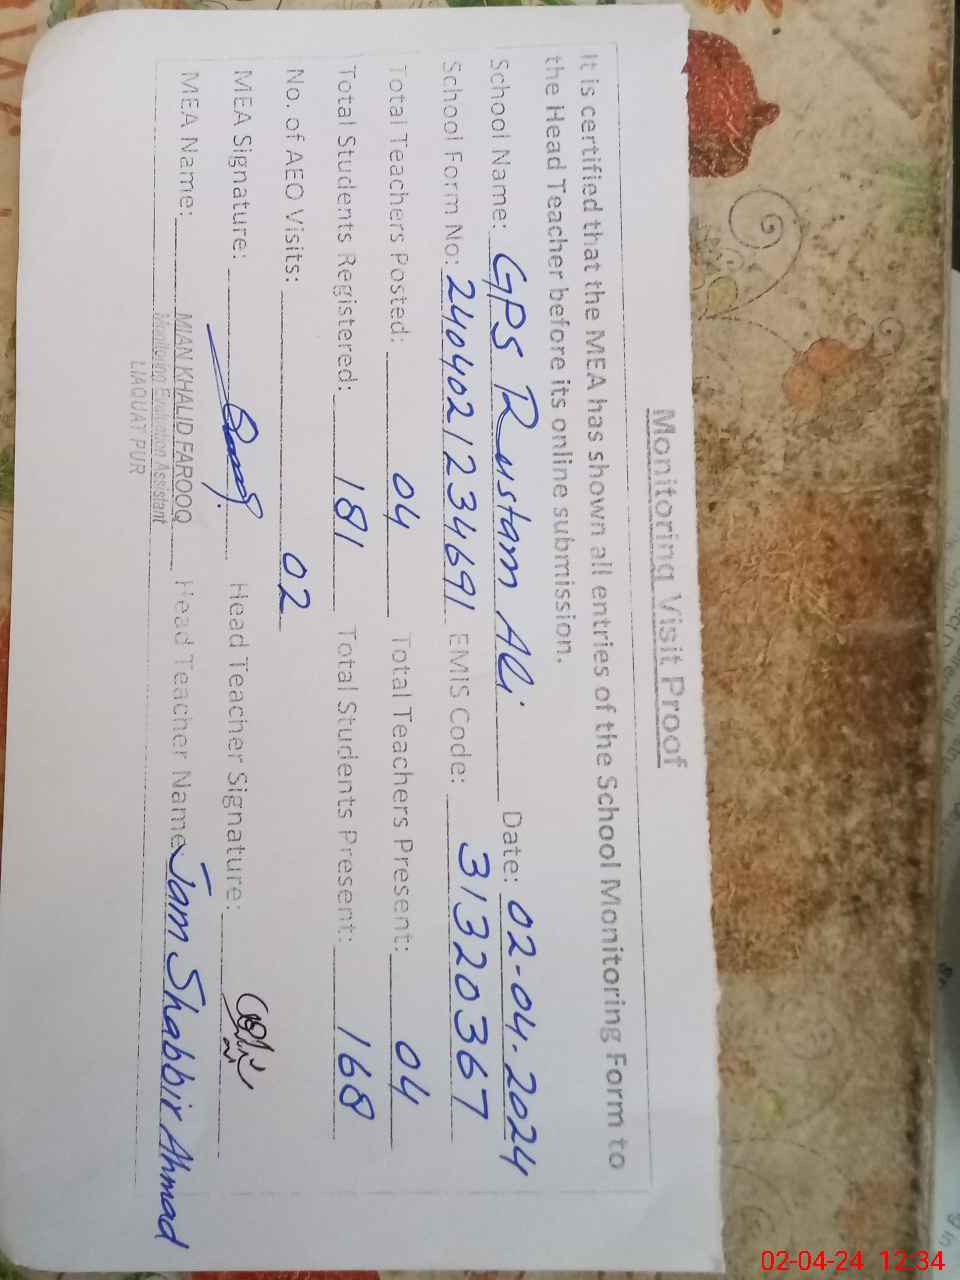 Monitoring Visit Proof
It is certified that the MEA has shown all entries of the School Monitoring Form to
the Head Teacher before its online submission.
School Name: GPS Rustam Ali Date: 02-04-2024
School Form No: 2404021234691 EMIS Code: 31320367
Total Teachers Posted: 04 Total Teachers Present: 04
Total Students Registered: 181 Total Students Present: 168
No. of AEO Visits: 02
MEA Signature: Head Teacher Signature:
MEA Name: MIAN KHALID FAROOQ Head Teacher Name Jam Shabbir Ahmad
Monitoring Evaluation Assistant
LIAQUAT PUR
02-04-24 12:34